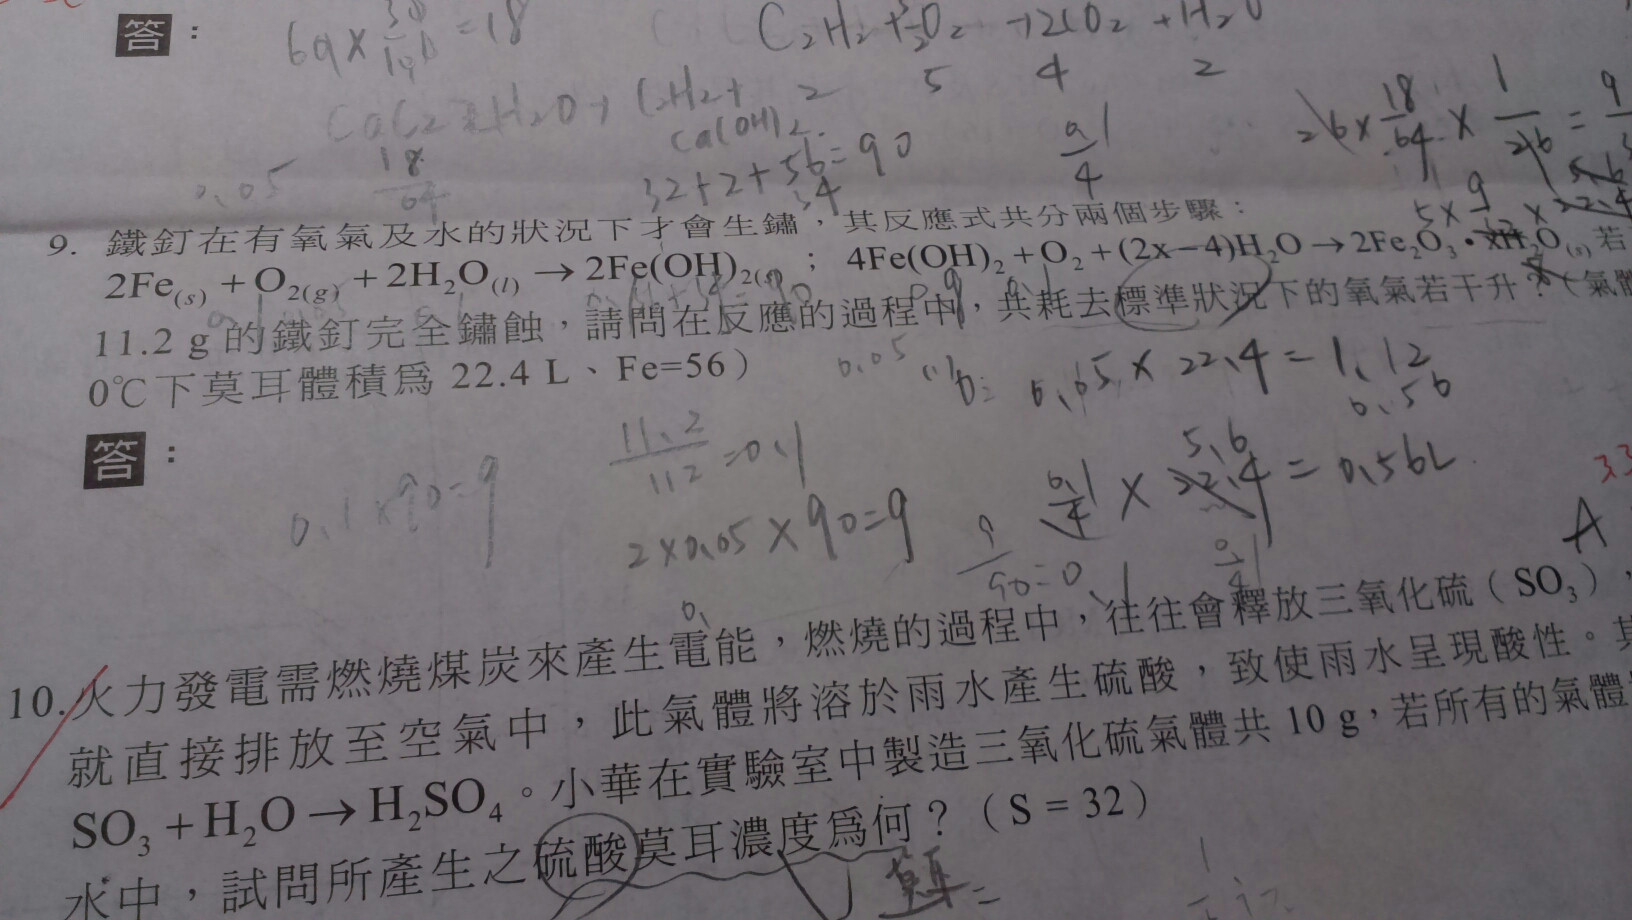 答：
69×30/100=18
C₂H₂+5/2O₂→2CO₂+H₂O
2 5 4 2
CaC₂ 2H₂O→C₂H₂+Ca(OH)₂
18/64
0.05
32+2+56=90
34
0.1/4
26×18/64×1/26=9
5×9/32×22.4
5.6
9. 鐵釘在有氧氣及水的狀況下才會生鏽，其反應式共分兩個步驟：
2Fe(s)+O₂(g)+2H₂O(l)→2Fe(OH)₂(s)；4Fe(OH)₂+O₂+(2x−4)H₂O→2Fe₂O₃·xH₂O(s)若
11.2 g 的鐵釘完全鏽蝕，請問在反應的過程中，共耗去標準狀況下的氧氣若干升？（氣體
0℃下莫耳體積為 22.4 L、Fe=56）
0.05
0.05×22.4=1.12
0.56
答：
11.2/112=0.1
0.1×90=9
2×0.05×90=9
9/90=0.1
0.1/4×22.4=0.56L
5.6
0.1/4
33
A
10.火力發電需燃燒煤炭來產生電能，燃燒的過程中，往往會釋放三氧化硫（SO₃），
就直接排放至空氣中，此氣體將溶於雨水產生硫酸，致使雨水呈現酸性。其
SO₃+H₂O→H₂SO₄。小華在實驗室中製造三氧化硫氣體共 10 g，若所有的氣體
水中，試問所產生之硫酸莫耳濃度為何？（S = 32）
莫耳=